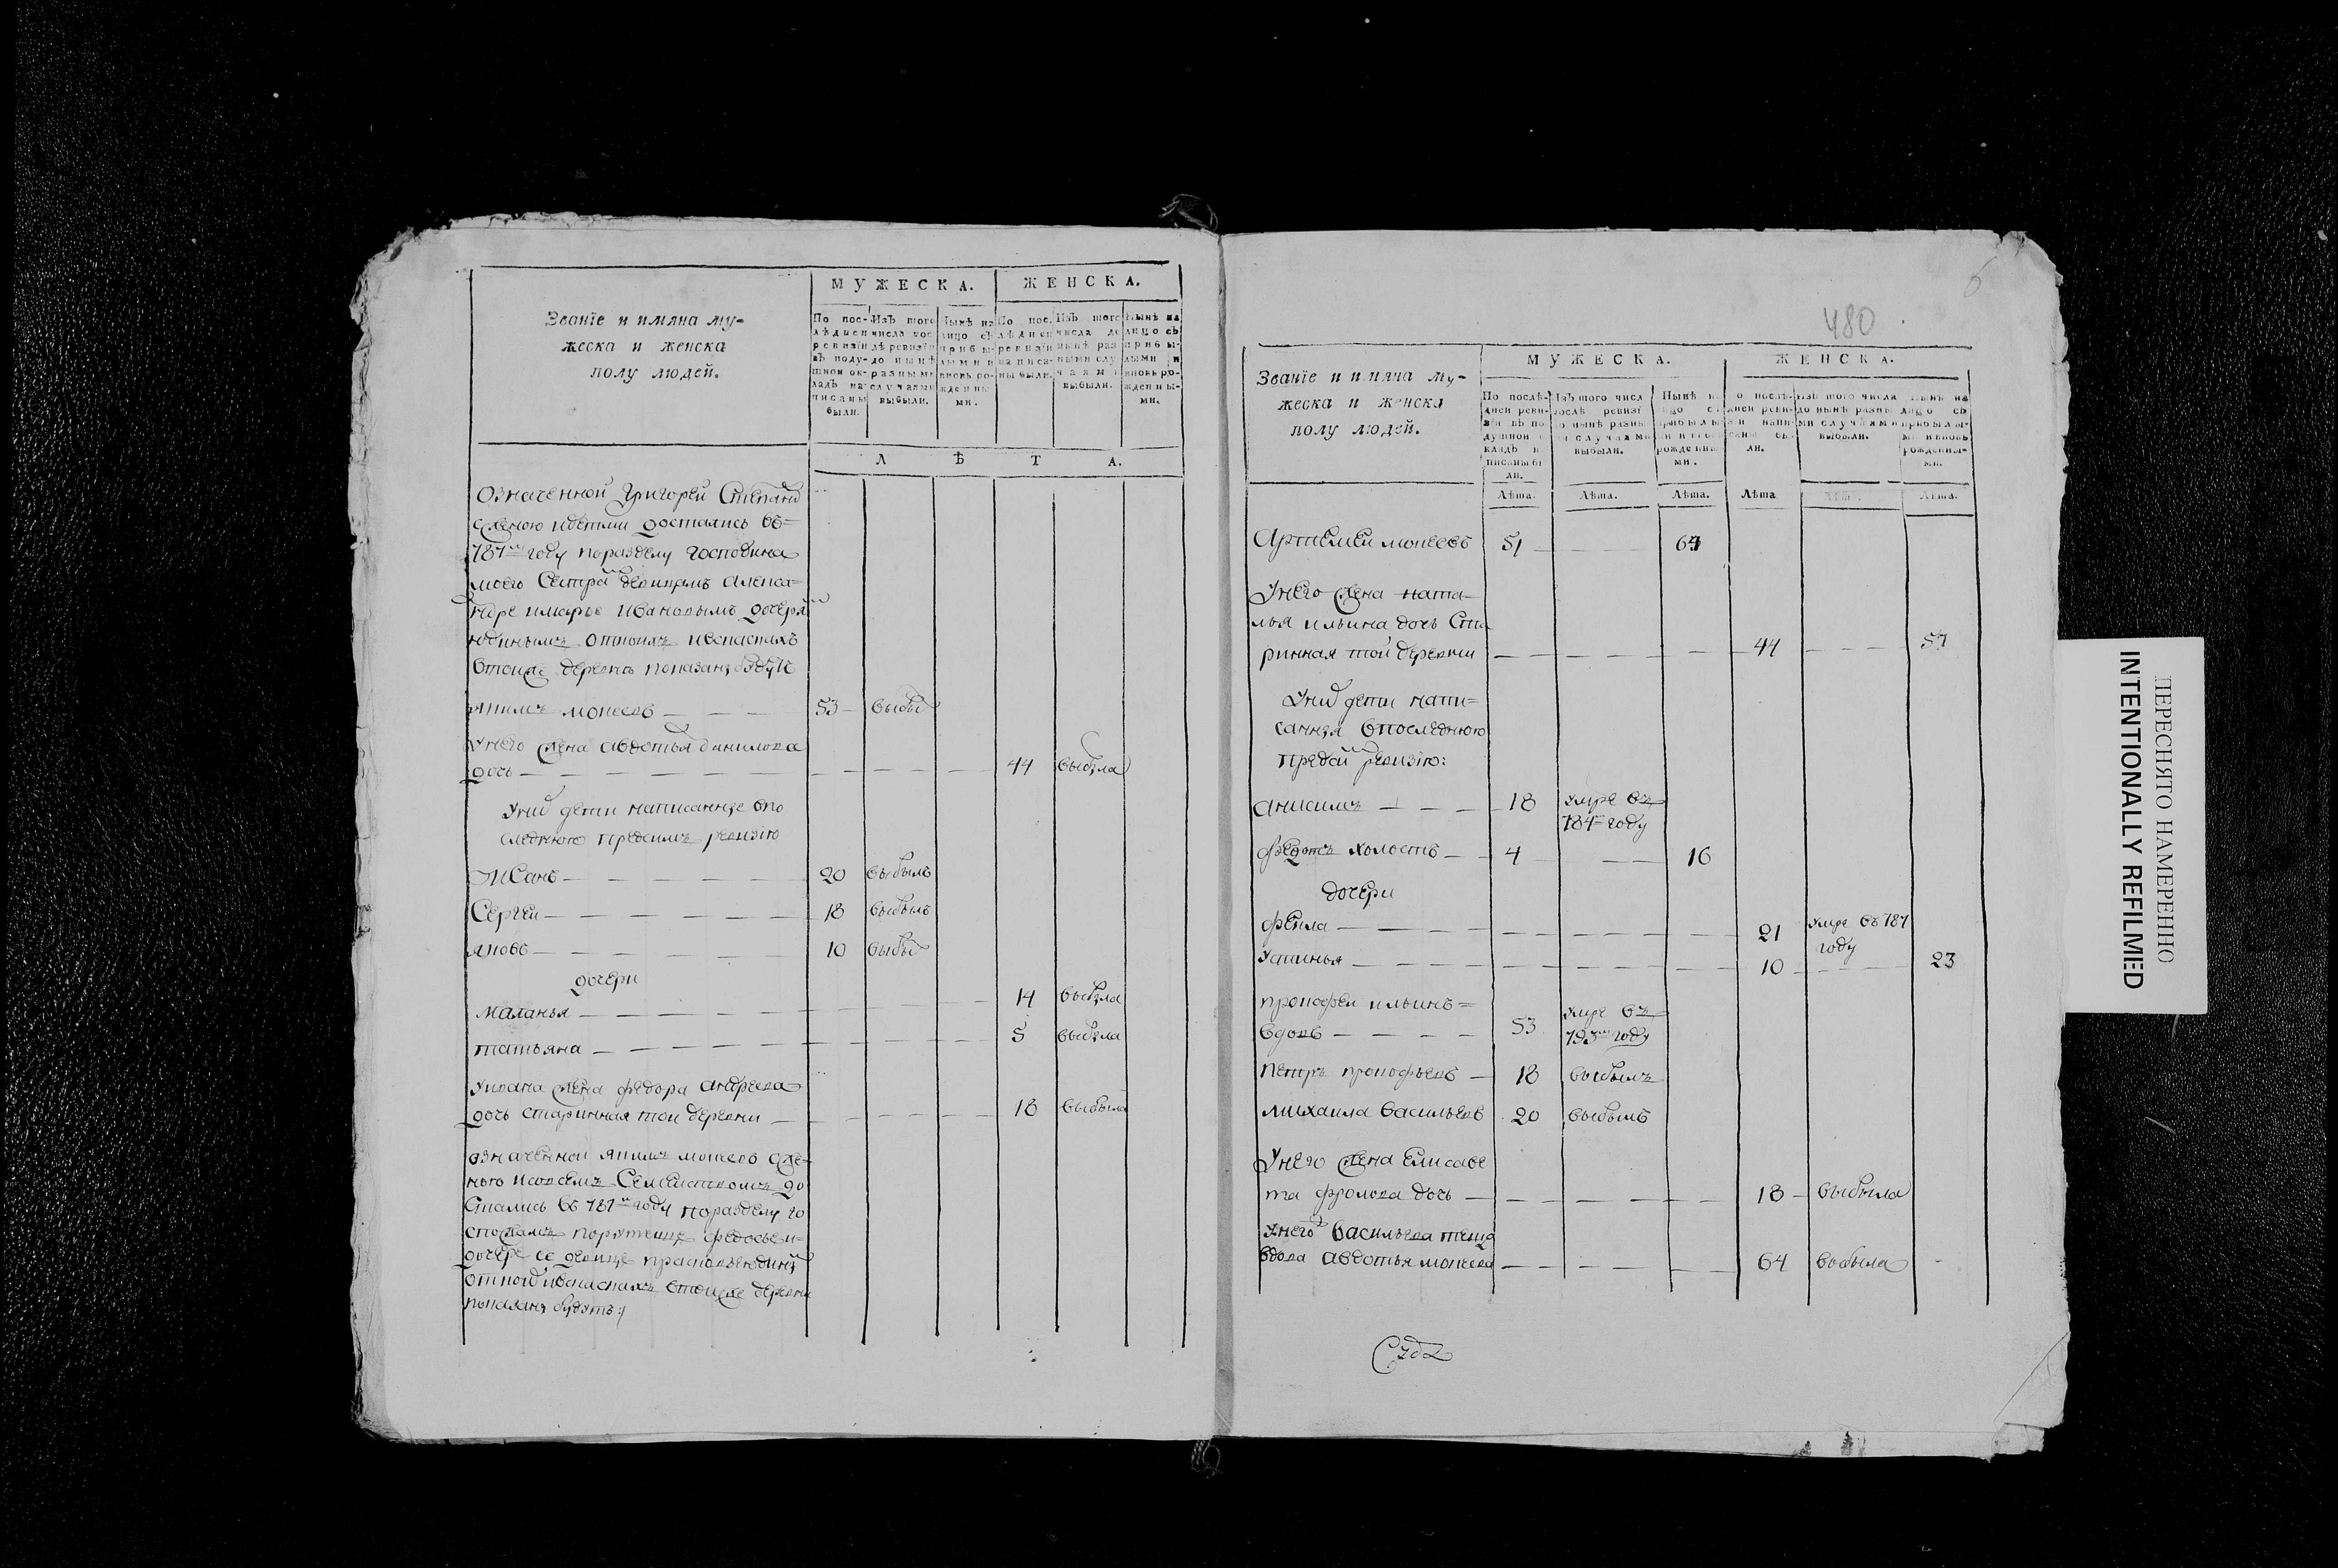 Званїе и имяна му-
жеска и женска
полу людей.
МУЖЕСКА.
ЖЕНСКА.
По пос-
лѣдней
ревизїи
въ поду-
шной ок-
ладъ на-
писаны
были.
Изъ того
числа пос
лѣ ревизїи
до нынѣ
разными
случаями
выбыли.
Нынѣ на
лицо съ
прибы-
лыми и
вновь ро-
жденны
ми.
По пос.
лѣдней
ревизїи
написа-
ны были.
Изъ того
числа до
нынѣ раз
ными слу
чаями
выбыли.
Нынѣ на
лицо съ
прибы-
лыми и
вновь ро-
жденны-
ми.
ЛѢТА.
Означенной Григорей Степанов
сженою идетми достались въ=
787м году поразделу господина
моего Сестрам девицам Алекса=
ндре имарье Ивановым дочерям
Юдиным откоих исписках
втоиже деревне показаны будут
яким мокеев — — — 53 — выбыл
Унего жена авдотья данилова
дочь — — — — — 44 выбыла
Уних дети написанные впо
следнюю предсим ревизию
Исакъ — — — — — 20 выбылъ
Сергеи — — — — — 18 выбылъ
яковъ — — — — — 10 выбыл
дочери
маланья — — — — — 14 выбыла
татьяна — — — — — 5 выбыла
Уисака жена федора андреева
дочь старинная тои деревни — — — 18 выбыла
означеннои яким мокеев сже-
ною исовсем Семеиством до
Стались въ 787м году поразделу го
спожам
дочере ее девице прасковье юдиной
откоих исписках втоиже деревни
показаны будутъ
480
6
Званїе и имяна му-
жеска и женска
полу людей.
МУЖЕСКА.
ЖЕНСКА.
По послѣ-
дней реви-
зїи въ по
душной о
кладъ н
писаны бы
ли.
Изъ того числ
послѣ ревизї
до нынѣ разны
ми случаями
выбыли.
Нынѣ на
лицо съ
прибылы
ми и вновь
рожденны
ми.
о послѣ-
дней реви-
зїи напи-
саны бы-
ли.
Изъ того числа
до нынѣ разны
ми случаями
выбыли.
Нынѣ на
лицо съ
прибылы-
ми и вновь
рожденны-
ми.
Лѣта. Лѣта. Лѣта. Лѣта Лѣта. Лѣта.
Артемеи мокеевъ 51 — — — 64
Унего жена ната-
лья ильина дочь Ста
ринная тои деревни — — — — — 44 — — — 57
Уних дети напи=
санныя впоследнюю
пред сим ревизию:
анисимъ — — — 18 умре въ
784м году
федотъ холостъ — — 4 — — 16
дочери
фекла — — — — — 21 умре въ 787
году
устинья — — — — — 10 — — — 23
прокофеи ильинъ=
вдовъ — — — — 53 умре въ
793м году
петръ прокофьевъ — 18 выбылъ
михаила васильевъ 20 выбылъ
Унего жена Елисаве
та фролова дочь — — — — — 18 — выбыла
Унего васильева теща
вдова авдотья мокеева — — — — — 64 выбыла
ПЕРЕСНЯТО НАМЕРЕННО
INTENTIONALLY REFILMED